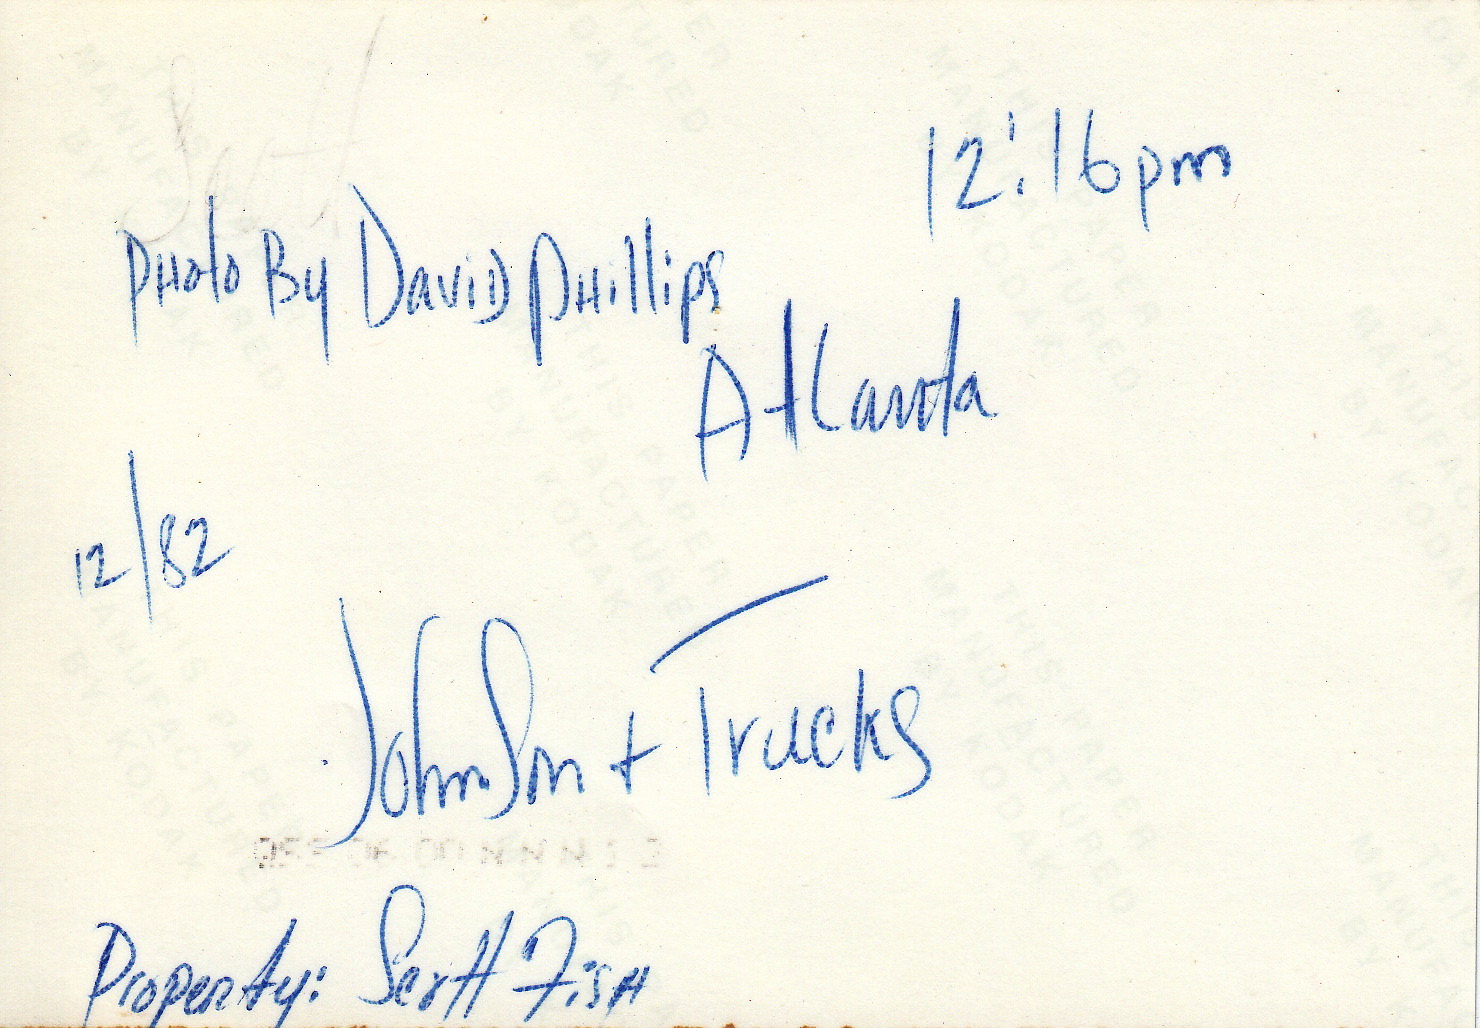 12:16pm
Photo By David Phillips
Atlanta
12/82
Johnson + Trucks
Property: Scott Fish
THIS PAPER
MANUFACTURED
BY KODAK